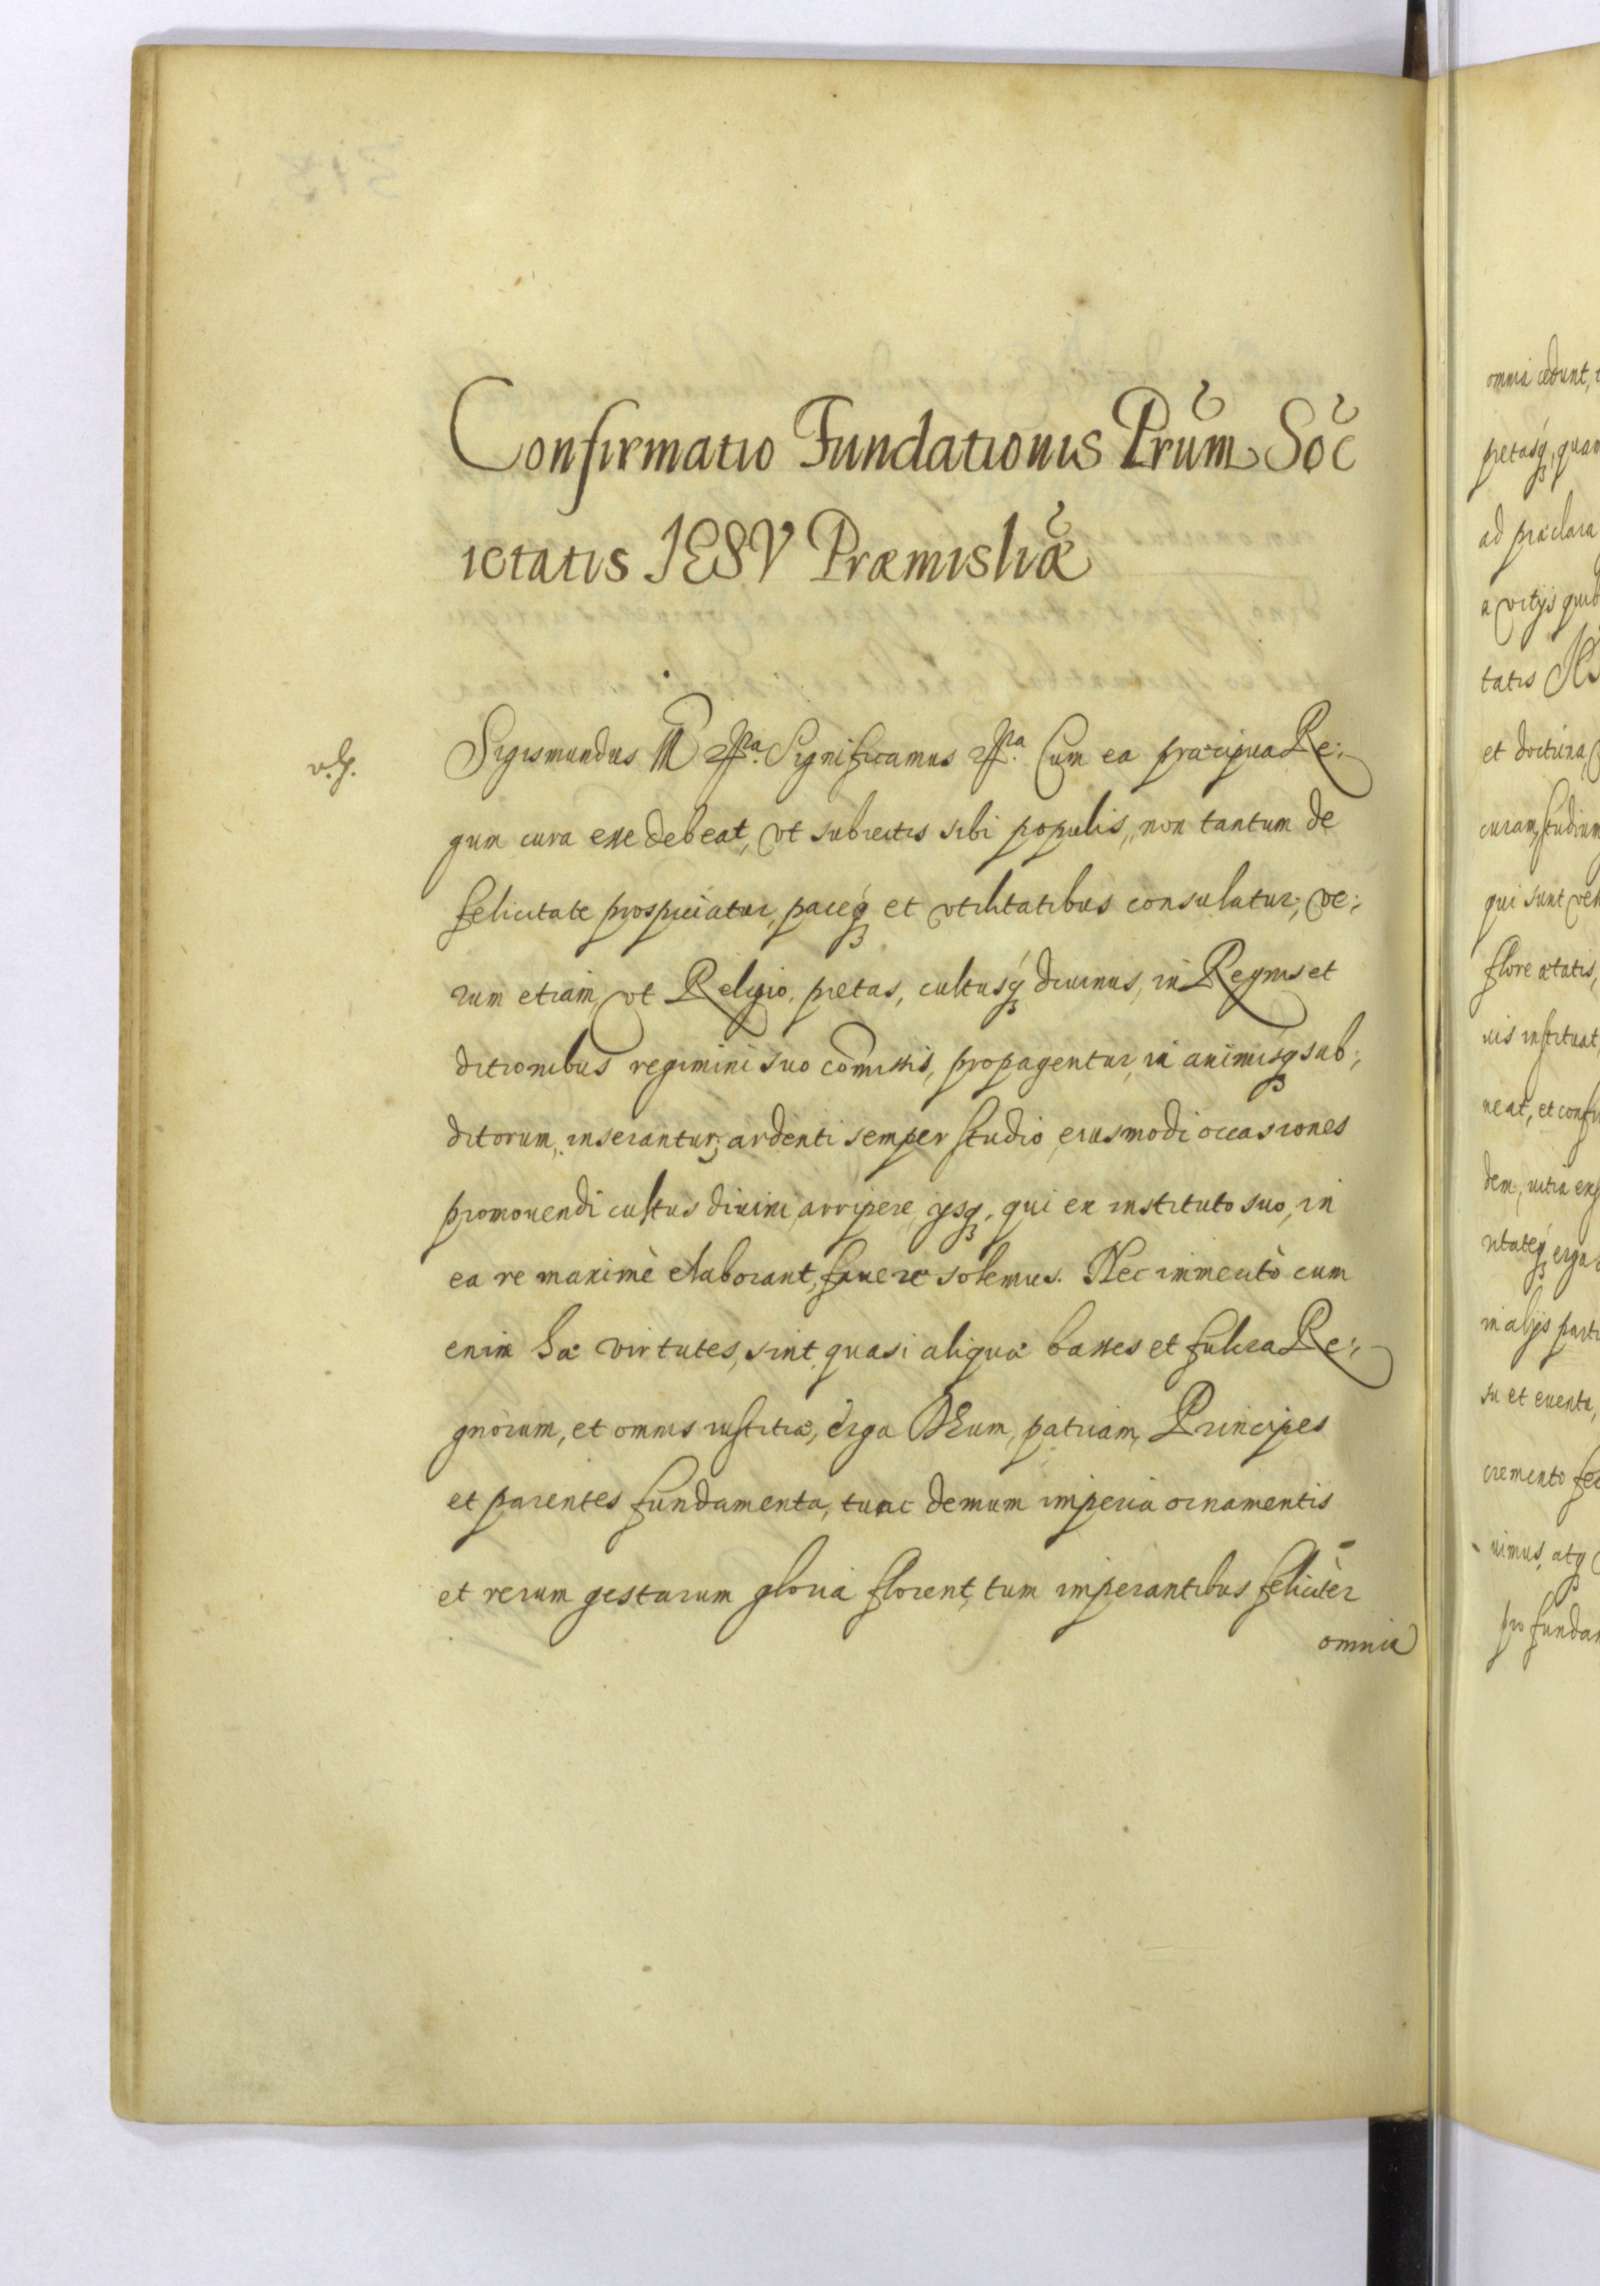 Confirmatio Fundationis Prum Soc
ietatis IESV Præmisliæ
Sigismundus III Significamus Cum ea præcipua Re:
gum cura esse debeat, vt subiectis sibi populis, non tantum de
felicitate prospiciatur, paceq3 et vtilitatibus consulatur; ve:
rum etiam, vt Religio, pietas, cultusq3 diuinus, in Regnis et
ditionibus regimini suo com̃issis, propagentur, in animisq3 sub:
ditorum, inserantur; ardenti semper studio, eiusmodi occasiones
promouendi cultus diuini, arripere, ijsq3, qui ex instituto suo, in
ea re maximè elaborant, fauere solemus. Nec immeritò cum
enim hæ virtutes, sint quasi aliquæ basses et fulcra Re:
gnorum, et omnis iustitiæ, erga DEum, patriam, Principes
et parentes fundamenta, tunc demum imperia ornamentis
et rerum gestarum gloria florent, tum imperantibus feliciter
omnia
omnia cedunt,
pietasq3, quam
ad præclara
a vitijs quib
tatis
et doctrina,
curam, studium
qui sunt veh
flore ætatis,
uis instituat,
neat, et confi
dem, vitia ex
ritateq3 erga
in alijs parti
su et euentu,
cremento
uimus, atq3
pro fundan